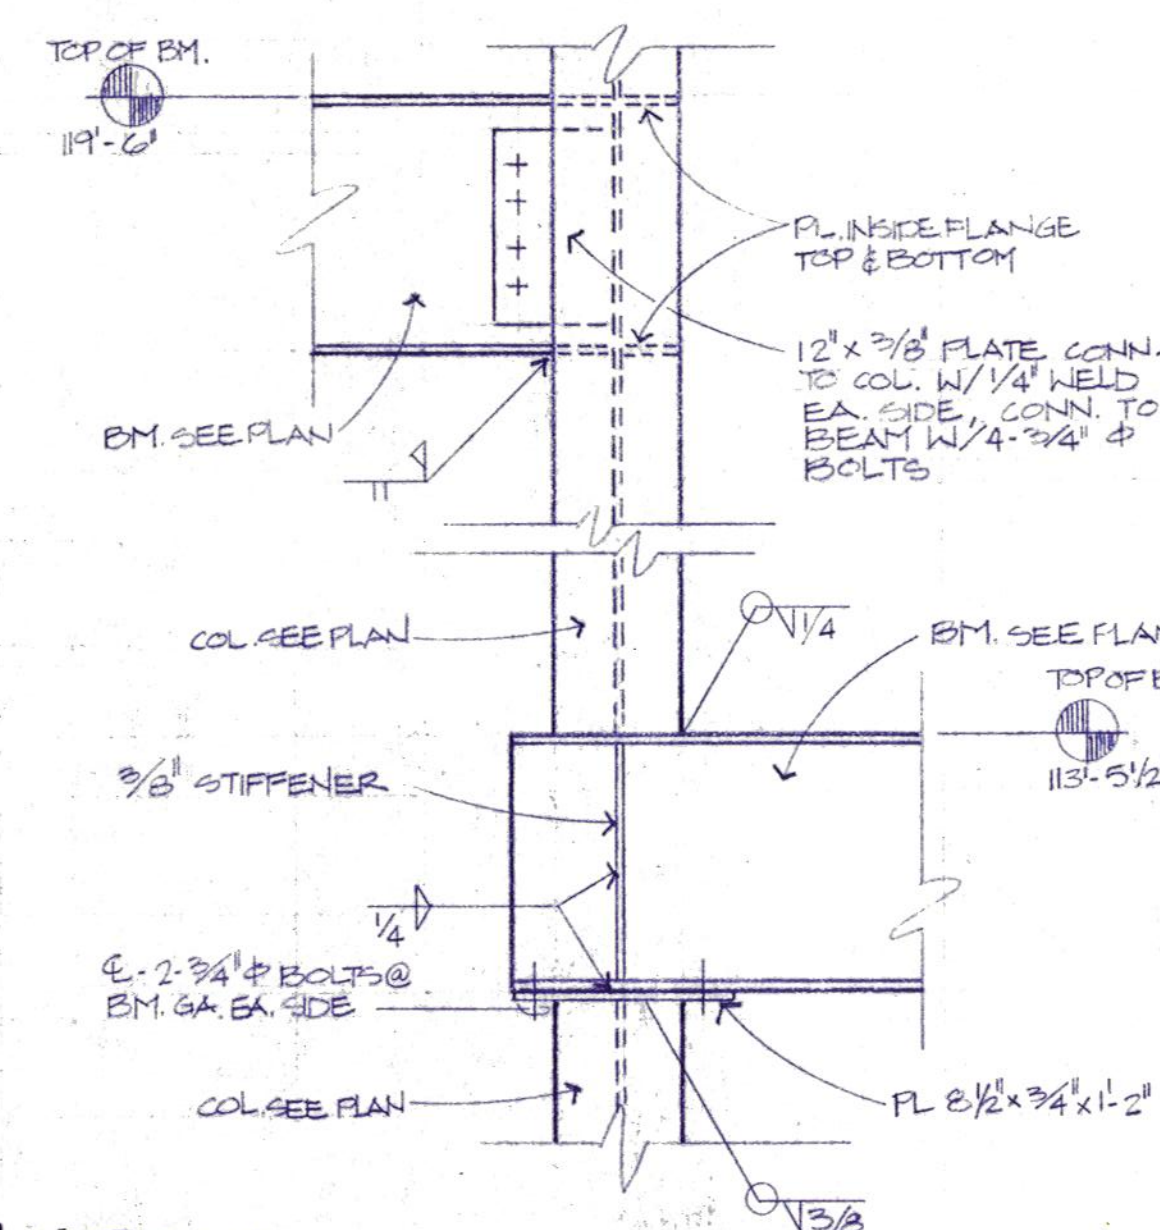 TOP OF BM.
119'-6"
PL. INSIDE FLANGE
TOP & BOTTOM
12" x 3/8" PLATE CONN.
TO COL. W/ 1/4" WELD
EA. SIDE, CONN. TO
BEAM W/ 4-3/4" Φ
BOLTS
BM. SEE PLAN
COL. SEE PLAN
1/4
BM. SEE PLAN
TOP OF
113'-5 1/2
3/8" STIFFENER
1/4
℄ - 2-3/4" Φ BOLTS @
BM. GA. EA. SIDE
COL. SEE PLAN
PL 8 1/2" x 3/4" x 1'-2"
3/8